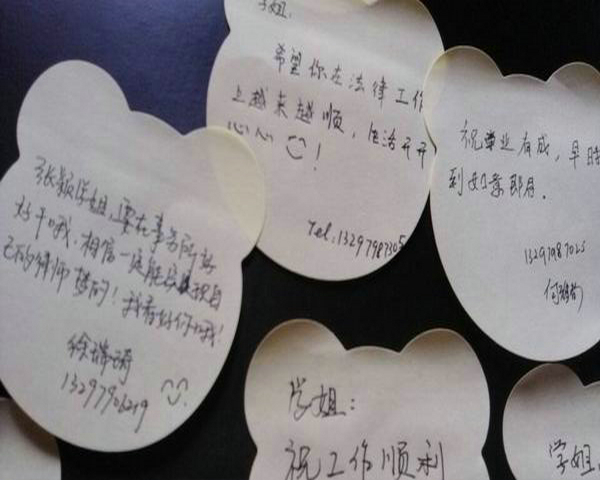 学姐:
希望你在法律工作
上越来越顺,生活开开
心心 !
Tel:13297987305
祝学业有成,早日
到如意郎君.
13297987025
张颖学姐,要在事务所好
好干哦.相信一定能实现自
己的律师梦的!我看好你哦!
徐瑞琦
13297906219
学姐:
祝工作顺利
学姐